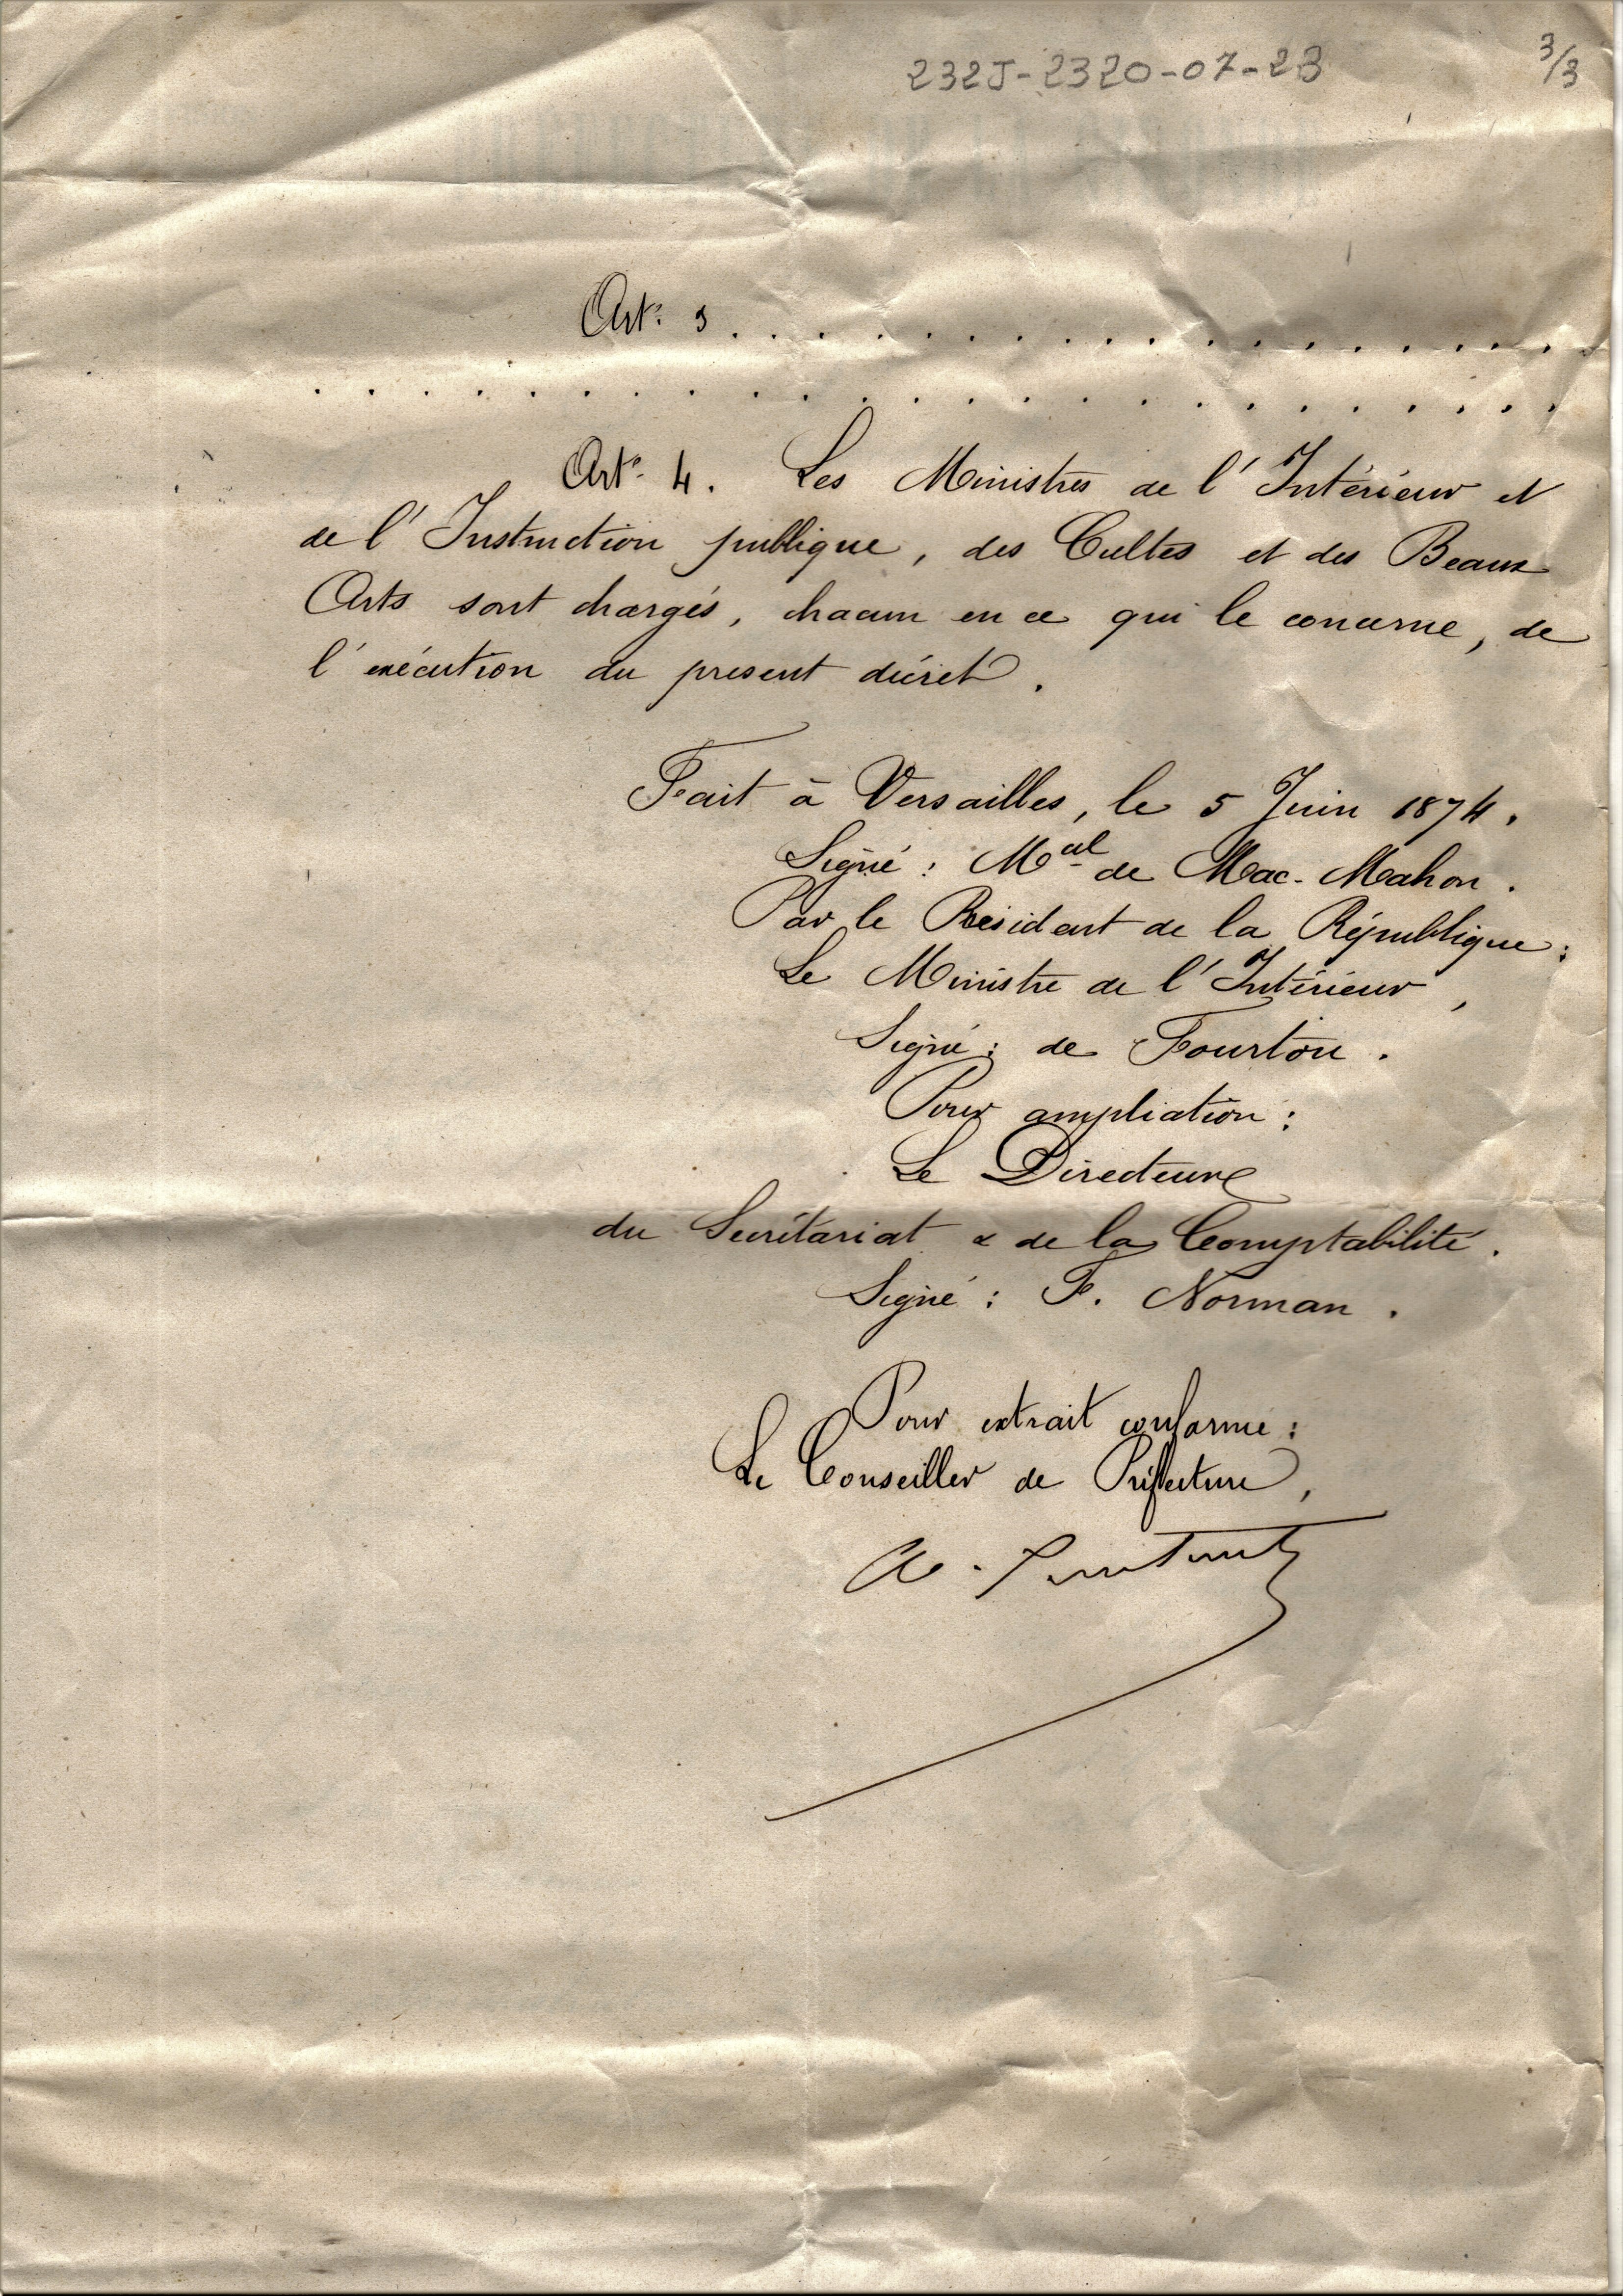 232J-2320-07-23
3/3
Art. 3. . . . . . . . . . . . . . . . . .
. . . . . . . . . . . . . . . . . . . . . . .
Art. 4. Les Ministres de l'Intérieur et
de l'Instruction publique, des Cultes et des Beaux
Arts sont chargés, chacun en ce qui le concerne, de
l'exécution du present décret.
Fait à Versailles, le 5 Juin 1874.
Signé : Mal de Mac-Mahon.
Par le Président de la République :
Le Ministre de l'Intérieur,
Signé : de Fourtou.
Pour ampliation :
Le Directeur
du Secrétariat & de la Comptabilité.
Signé : F. Norman.
Pour extrait conforme :
Le Conseiller de Préfecture,